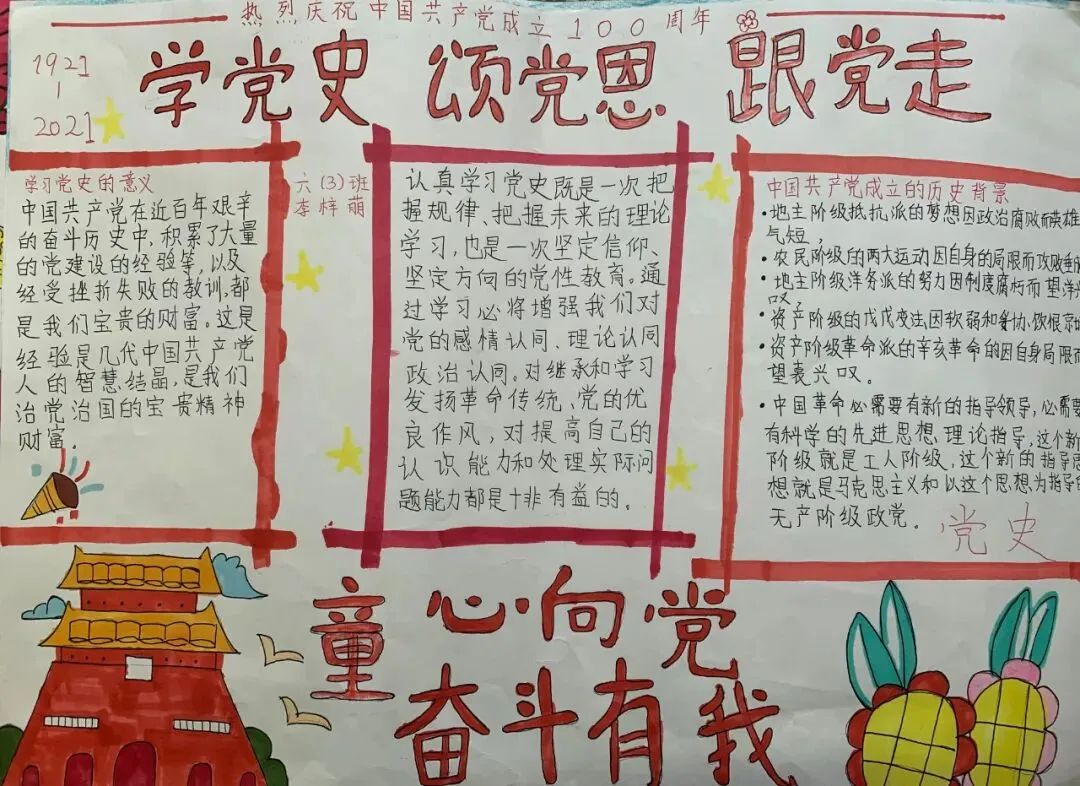 热烈庆祝中国共产党成立100周年
1921
|
2021
学党史 颂党恩 跟党走
学习党史的意义
中国共产党在近百年艰辛
的奋斗历史中,积累了大量
的党建设的经验等,以及
经受挫折失败的教训,都
是我们宝贵的财富。这是
经验是几代中国共产党
人的智慧结晶,是我们
治党治国的宝贵精神
财富。
六(3)班
李梓萌
认真学习党史既是一次把
握规律、把握未来的理论
学习,也是一次坚定信仰、
坚定方向的党性教育。通
过学习必将增强我们对
党的感情认同、理论认同
政治认同。对继承和学习
发扬革命传统、党的优
良作风,对提高自己的
认识能力和处理实际问
题能力都是十非有益的。
中国共产党成立的历史背景
·地主阶级抵抗派的梦想因政治腐败而英雄
气短,
·农民阶级的两大运动因自身的局限而攻败垂
·地主阶级洋务派的努力因制度腐朽而望洋
叹,
·资产阶级的戊戌变法,因软弱和妥协,饮恨京
·资产阶级革命派的辛亥革命的因自身局限而
望襄兴叹。
·中国革命必需要有新的指导领导,必需要
有科学的先进思想理论指导,这个新
阶级就是工人阶级,这个新的指导思
想就是马克思主义和以这个思想为指导的
无产阶级政党。
党史
童心向党
奋斗有我